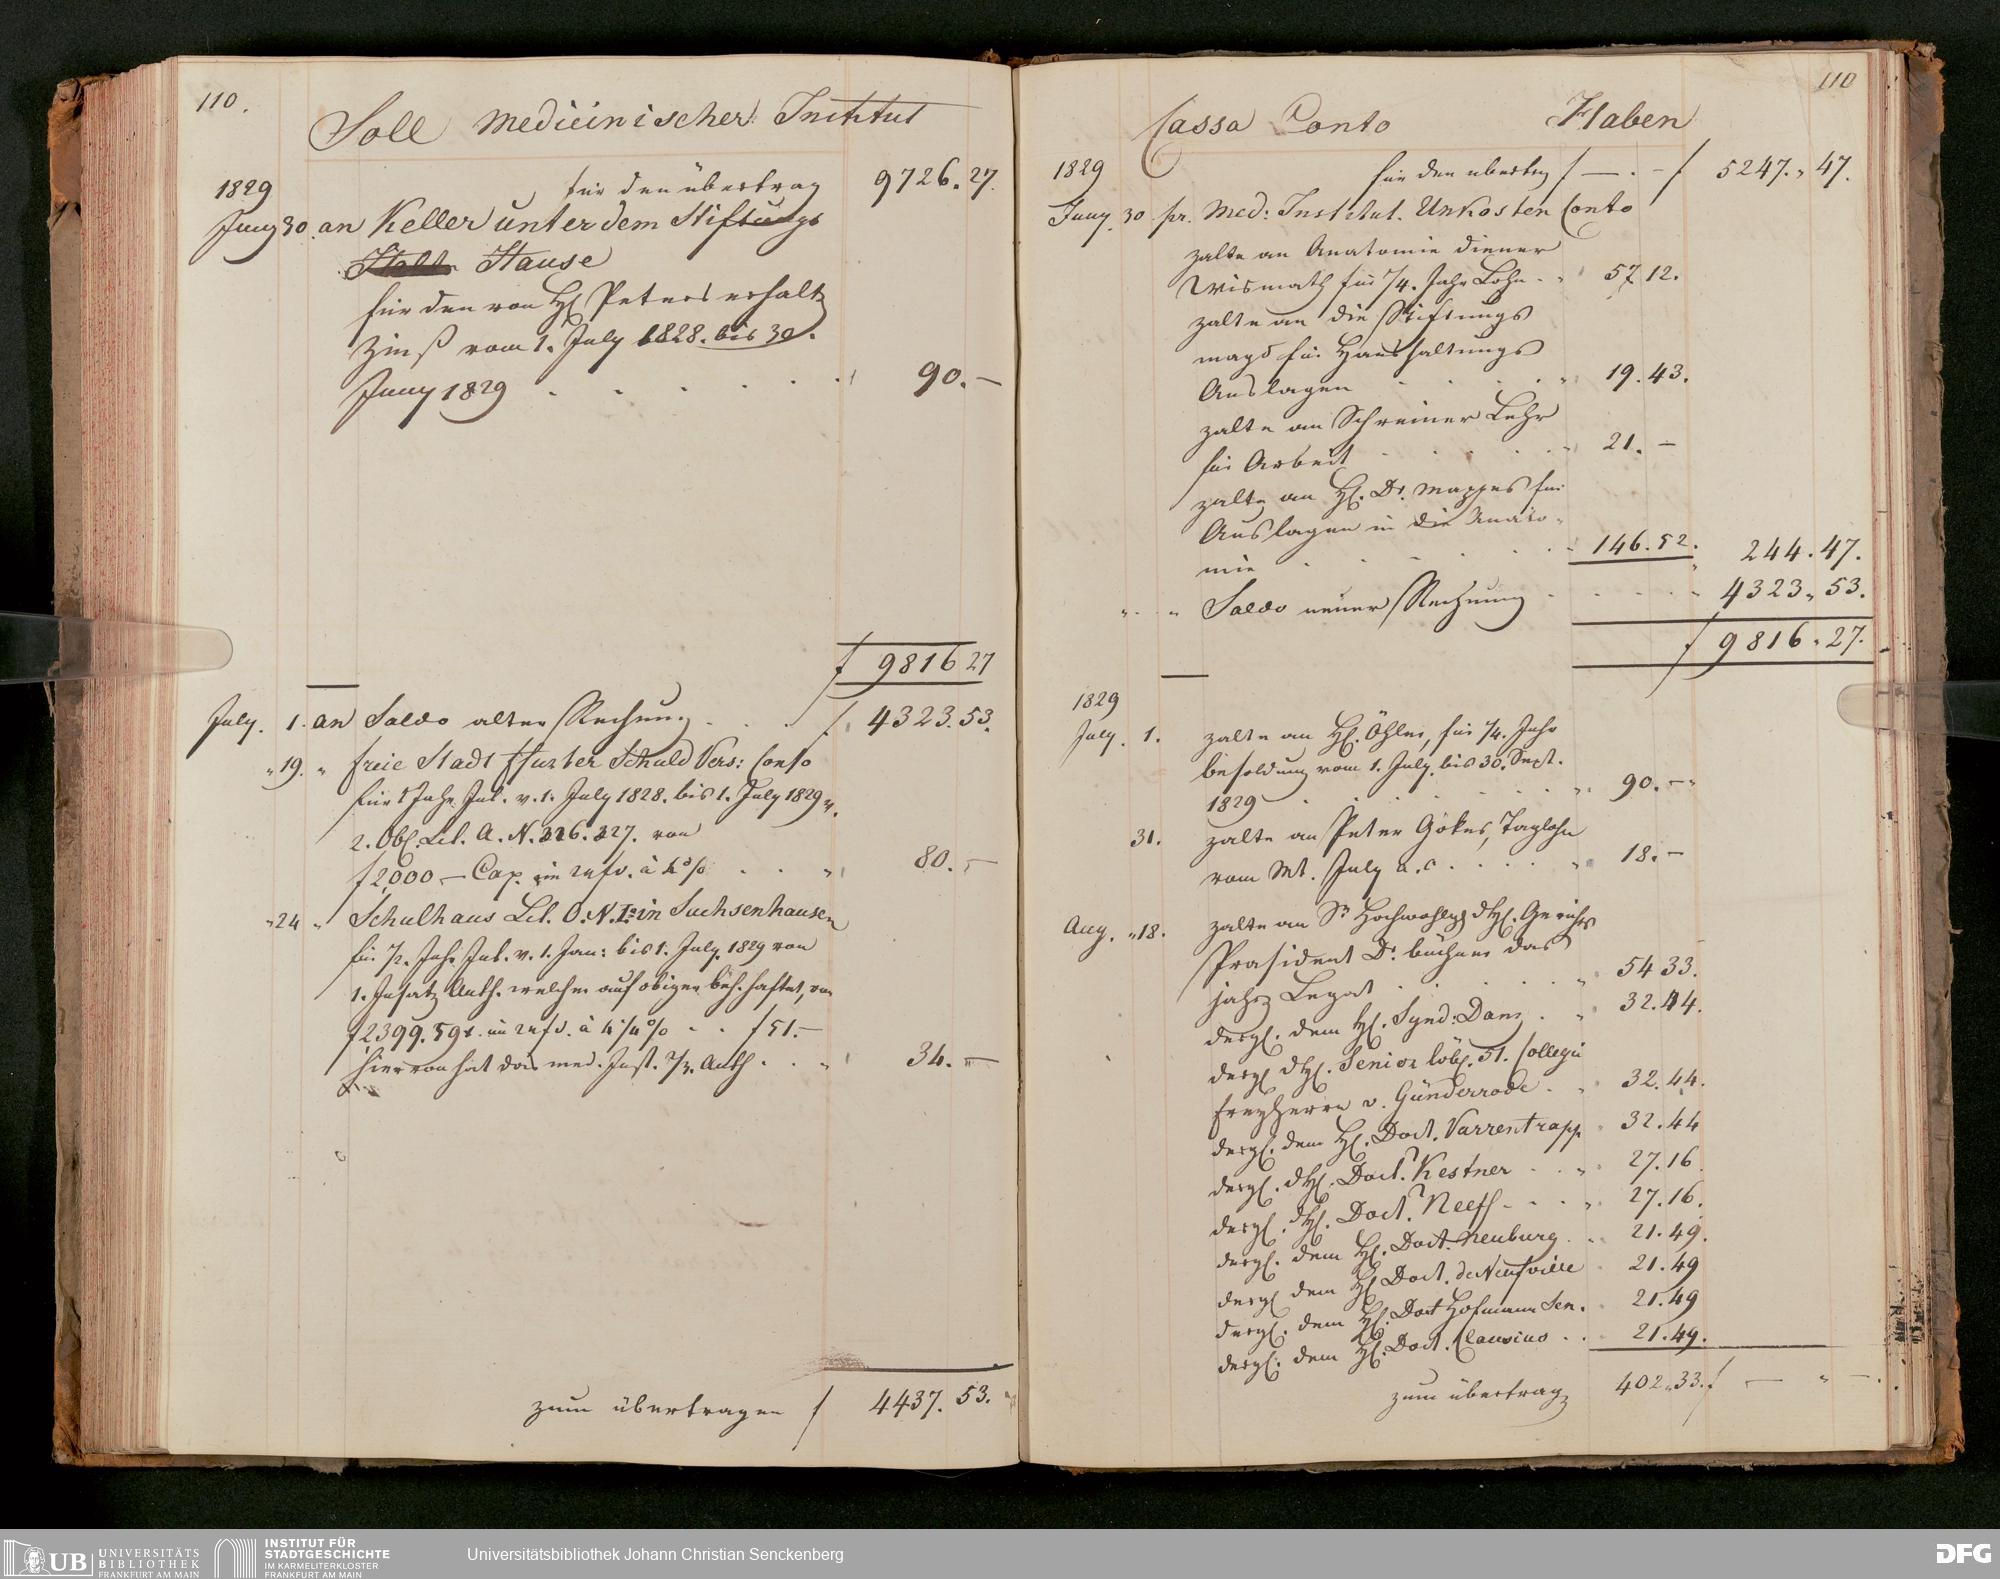 110.
Soll Medicinischer Institut
1829
für den übertrag 9726.27.
Juny 30. an Keller unter dem Stiftungs
Hause
für den von H. Peters erhalt
Zinß vom 1. July 1828. bis 30.
Juny 1829 . . . . . " 90.—
f 9816 27
July. 1. an Saldo alter Rechnung . . . f. 4323.53.
" 19. " freie Stadt Schuld Vers: Conto
für 1 Jahr Int. v. 1. July 1828. bis 1. July 1829 v.
2. Obl. Lit. A. N. 326. 327. von
f 2,000 — Cap. à 4% . . " 80. —
" 24 " Schulhaus Lit. O. N. 1: in Sachsenhausen
für ½. Jahr Int. v. 1. Jan: bis 1. July 1829 von
1. Insatz Anth. welcher auf obigen beh. haftet, von
f 2399. 59x. à 4¼% . . f 51.—
hiervon hat das med. Inst. ⅔. Anth . . " 34. —
zum übertragen f 4437. 53.
110
Cassa Conto Haben
1829 für den übertrg f — . — f 5247. " 47.
Juny. 30 pr. Med: Institut. Unkosten Conto
zalte an Anatomie diener
Wismath für ¼. Jahr Lohn . . " 57 12.
zalte an die Stiftungs
magd für Haushaltungs
Auslagen . . . . " 19. 43.
zalte an Schreiner Lehr
für Arbeit . . . . " 21. —
zalte an H. Dr. Mappes für
Auslagen in die Anato-
mie . . . . " 146.52. " 244.47.
" . " Saldo neuer Rechnung . . . . " 4323. 53.
f 9816. 27.
1829
July. 1. zalte an H. Öhler, für ¼. Jahr
besoldung vom 1. July. bis 30. Sept.
1829 . . . . . . " 90. —
31. zalte an Peter Gökes, Taglohn
vom Mt. July a. c. . . . . " 18. —
Aug. " 18. zalte an Sr Hochwohlg dH. Gerichts
Präsident Dr. büchner das
jährg Legat . . . . " 54 33.
desgl. dem H. Synd: Danz . " 32. 44.
desgl dH. Senior löbl. 51. Collegii
freyherrn v. Günderrode . " 32. 44.
desgl. dem H. Doct. Varrentrapp " 32. 44
desgl. dH. Doct. Kestner . . " 27. 16
desgl. dH. Doct. Neeff . . . " 27. 16.
desgl. dem H. Doct. Neuburg . " 21. 49.
desgl dem H. Doct. de Neufville " 21. 49
desgl. dem H. Doct Hofmann Sen. " 21. 49
desgl. dem H. Doct. Clausius . . 21. 49.
zum übertrag 402. 33. f — " —.
UB UNIVERSITÄTS
BIBLIOTHEK
FRANKFURT AM MAIN
INSTITUT FÜR
STADTGESCHICHTE
IM KARMELITERKLOSTER
FRANKFURT AM MAIN
Universitätsbibliothek Johann Christian Senckenberg
DFG